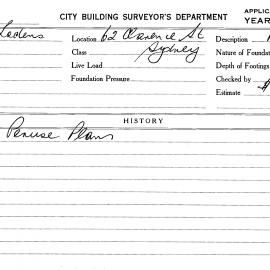 CITY BUILDING SURVEYOR'S DEPARTMENT
APPLIC
YEAR
Location 62 Clarence St
Description
Class Sydney
Nature of Foundat
Live Load
Depth of Footings
Foundation Pressure
Checked by
Estimate $
HISTORY
Peruse Plans